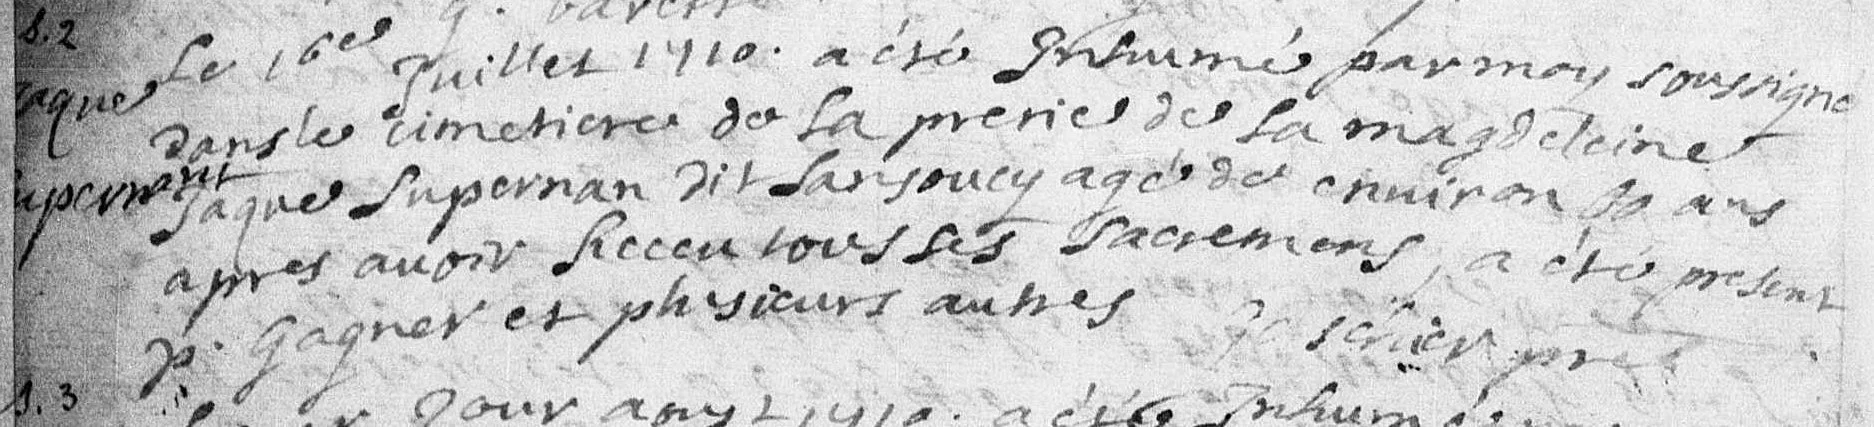 S. 2
Le 16e Juillet 1710. a été Inhumé par moy soussigné
Jaque
dans le cimetiere de La prerie de La magdeleine
Supernant
Jaque Supernan dit Sansoucy agé de environ 80 ans
apres avoir Receu tous Ses Sacremens, a été present
p. Gagner et plusieurs autres
S. 3
Jour aoust 1710. a été Inhumé